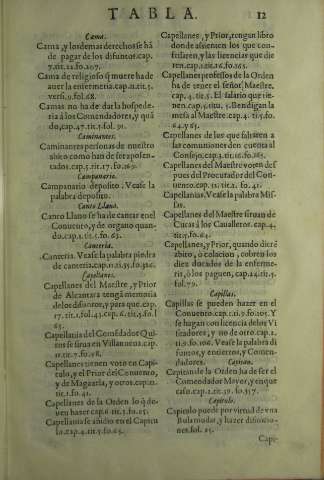 TABLA.
12
Cama.
Cama, y los demas derechos se hã
de pagar de los difuntos.cap.
7.tit.22.fo.207.
Cama de religioso q̃ muere ha de
auer la enfermeria.cap.11.tit.5.
versi.9.fol.68.
Camas no ha de dar la hospede-
ria à los Comendadores, y quã
do,cap.47.tit.5.fol.91.
Caminantes.
Caminantes personas de nuestro
abito como han de ser aposen-
tados.cap.
Campanario.
Campanario deposito. Vease la
palabra deposito.
Canto Llano.
Canto Llano se ha de cantar en el
Conuento, y de organo quan-
do.cap.1.tit.5.fo.63.
Canteria.
Canteria. Vease la palabra piedra
de canteria.
Capellanes.
Capellanes del Maestre, y Prior
de Alcantara tengã memoria
de los difuntos, y para que.cap.
17.tit.1.fol.43.cap.6.tit.5.fol
65.
Capellania del Comẽdador Qui-
ros se sirua en Villanueua.cap.
Capellanes tienen voto en Capi-
tulo, y el Prior del Conuento,
y de Magazela, y otros.cap.
tit.1.fo.41.
Capellanes de la Orden lo q̃ de-
uen hazer cap.6 tit.5.fo.65.
Capellania se añidio en el Capitu
lo.cap.4.tit.5.fo.65.
Capellanes, y Prior, tengan libro
donde assienten los que con-
fessaren, y las licencias que die
ren.cap.
Capellanes professos de la Orden
ha de tener el señor Maestre,
cap. 4. tit. 5. El salario que tie-
nen.cap.5.titu. 5. Bendigan la
mesa al Maestre.cap.4. tit.5.fo.
64.y 65.
Capellanes de los que faltaren a
las comuniones den cuenta al
Consejo.cap.
Capellanes del Maestre voten des
pues del Procurador del Con-
uento.cap. 11.tit.1. fo. 41.
Capellanias. Vease la palabra Mis-
sas.
Capellanes del Maestre siruan de
Curas à los Caualleros. cap.4.
tit.5.fo.64.
Capellanes, y Prior, quando dierẽ
abito, o colacion, cobren los
diez ducados de la enferme-
ria, ò los paguen, cap.24.tit.5.
fol.79.
Capillas.
Capillas se pueden hazer en el
Conuento.cap.
Y se hagan con licencia delos Vi
sitadores, y no de otro.cap.1.
Vease la palabra di
funtos, y entierros, y Comen-
dadores.
Capitan.
Capitan de la Orden ha de ser el
Comendador Mayor, y en que
caso.cap.1.tit. 39. fo.317.
Capitulo.
Capitulo puede por virtud de vna
Bula mudar, y hazer difinicio-
nes.fol.25.
Cape-